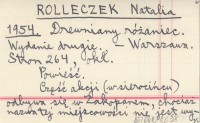 ROLLECZEK Natalia
1954. Drewniany różaniec.
Wydanie drugie. – Warszawa.
Stron 264,
Powieść.
Część akcji (w sierocińcu)
odbywa się w Zakopanem, chociaż
nazwa tej miejscowości nie jest